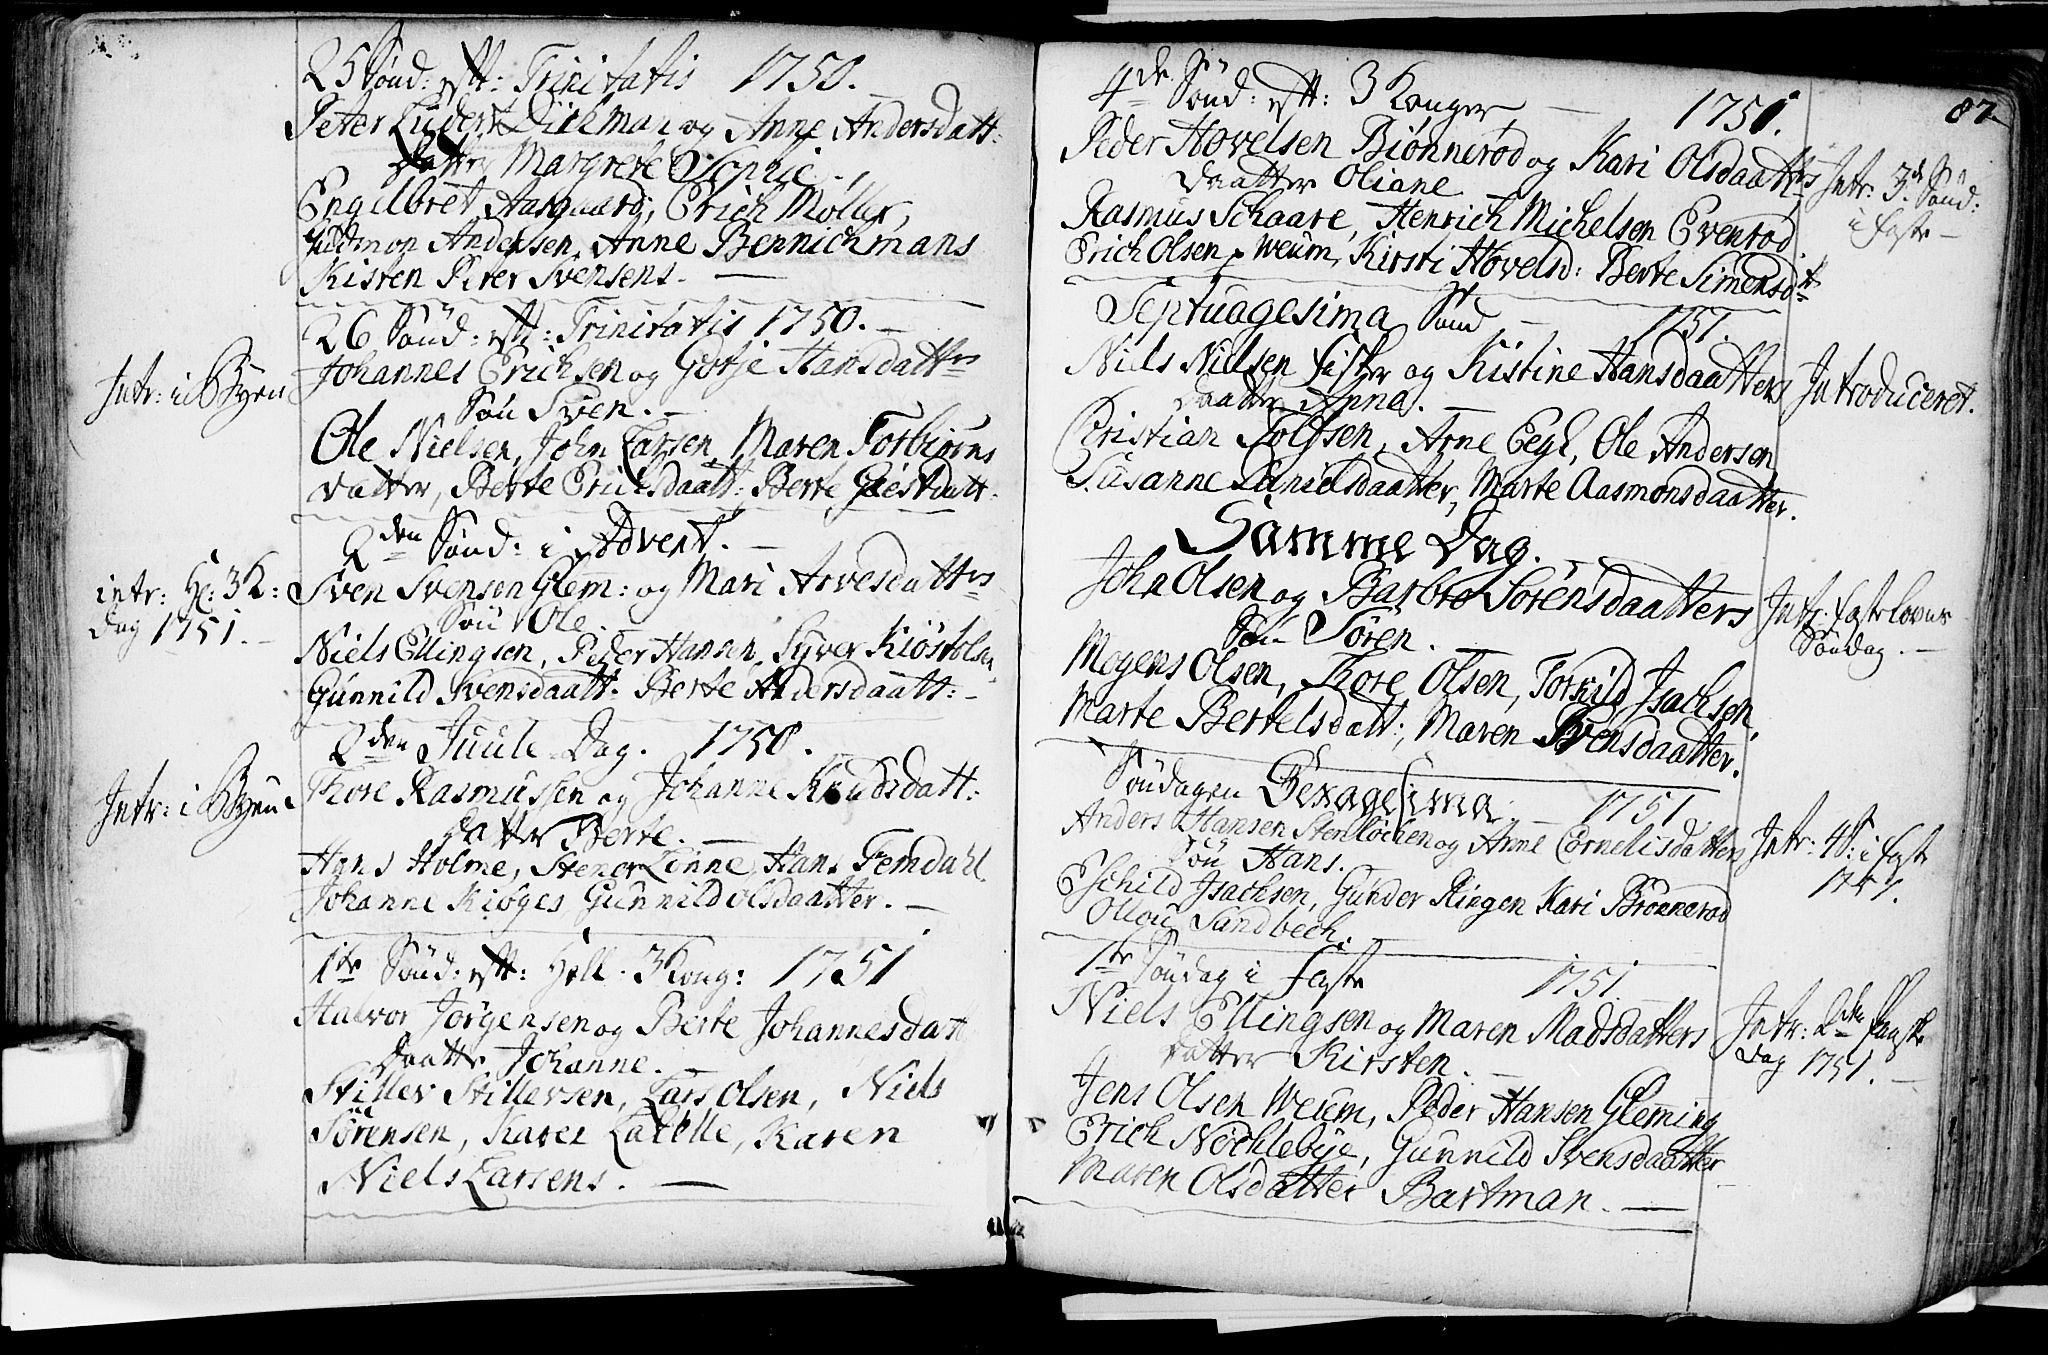 25 Sønd: eftt: Trinitatis 1750.
Peter Luders Dickman og Anne Andersdatt:
datter Margrete Sophie.
Engelbret Aasgaard, Erich Møller,
Andersen, Anne Bennichmans
Kisten Peter Svensens.
26 Sønd: eftt: Trinitatis 1750.
Intr: i Byen
Johannes Erichsen og Gotje Hansdatters
Søn Sven.
Ole Nielsen, John Larsen, Maren Torbiørns
datter, Berte Erichsdaatt: Berte Giestdatt.
2den Sønd: i Advent.
intr: H: 3 K:
Dag 1751.
Sven Svensen Glem: og Mari Arvesdatters
Søn Ole.
Niels Ellingsen, Peder Hansen, Syver Kiøstolsen
Gunnild Svensdaatt: Berte Andersdaatt:
2den Juule Dag. 1750.
Intr: i Byen
Thore Rasmussen og Johanne Knudsdatt:
datter Berte.
Hans Holme, Stener Linne, Hans Femdahl
Johanne Kiøges Gunnild Olsdaatter.
1te Sønd: eftt: Hell. 3 Kong: 1751
Halvor Jørgensen og Berte Johannesdatt
Daatter Johanne.
Stiller Stillersen, Lars Olsen, Niels
Sørensen, Karen Labolle, Karen
Niels Larsens.
87.
4de Sønd: eftt: 3 Konger 1751.
Peder Hovelsen Biønnerød og Kari Olsdaatters
Intr: 3de Sønd:
i Faste
Daatter Oliane
Rasmus Schaare, Henrich Michelsen Evenrød
Erich Olsen Weum, Kirsti Hovelsd: Berte Simensdtr
Septuagesima Sønd 1751.
Niels Nielsen Fisker og Kistine Hansdaatters
Introduceret.
Daatter Anna.
Christian Tolfsen, Arne Eegl, Ole Andersen
Susanne Danielsdaatter, Marte Aasmonsdaatter.
Samme Dag.
John Olsen og Barbro Sørensdaatters
Intr: Fastelovns
Søndag.
Søn Søren.
Mogens Olsen, Thore Olsen, Torkild Jsachsen,
Marte Bertelsdatt:, Maren Svensdaatter.
Søndagen Sexagesima 1751
Anders Hansen Stenløchen og Anne Cornelisdatters
Intr: 4 S: i Faste
1751.
Søn Hans.
Eschild Jsachsen, Gunder Ringen Kari Brønnerød
Sandbech.
1te Søndag i Faste 1751
Niels Ellingsen og Maren Madsdatters
Intr: 2den Paaske
Dag 1751.
Datter Kirsten.
Jens Olsen Weum, Peder Hansen Gleming
Erich Nøchlebye, Gunnild Svensdaatter
Maren Olsdatter Bartman.